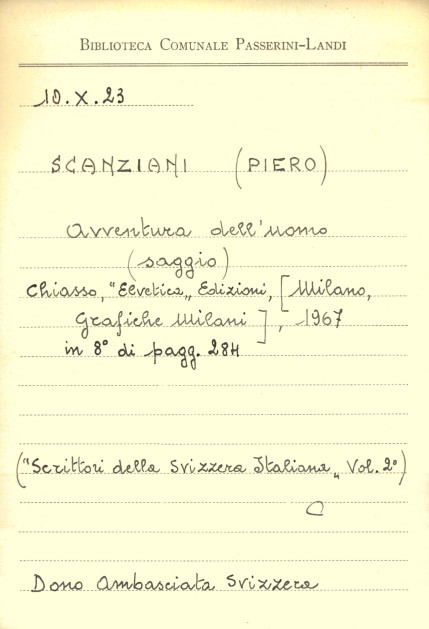 BIBLIOTECA COMUNALE PASSERINI-LANDI
10.X.23
SCANZIANI (PIERO)
Avventura dell'uomo
(saggio)
Chiasso, "Elvetica„ Edizioni, [Milano,
Grafiche Milani], 1967
in 8° di pagg. 284
("Scrittori della Svizzera Italiana„ Vol. 2°)
Dono Ambasciata Svizzera